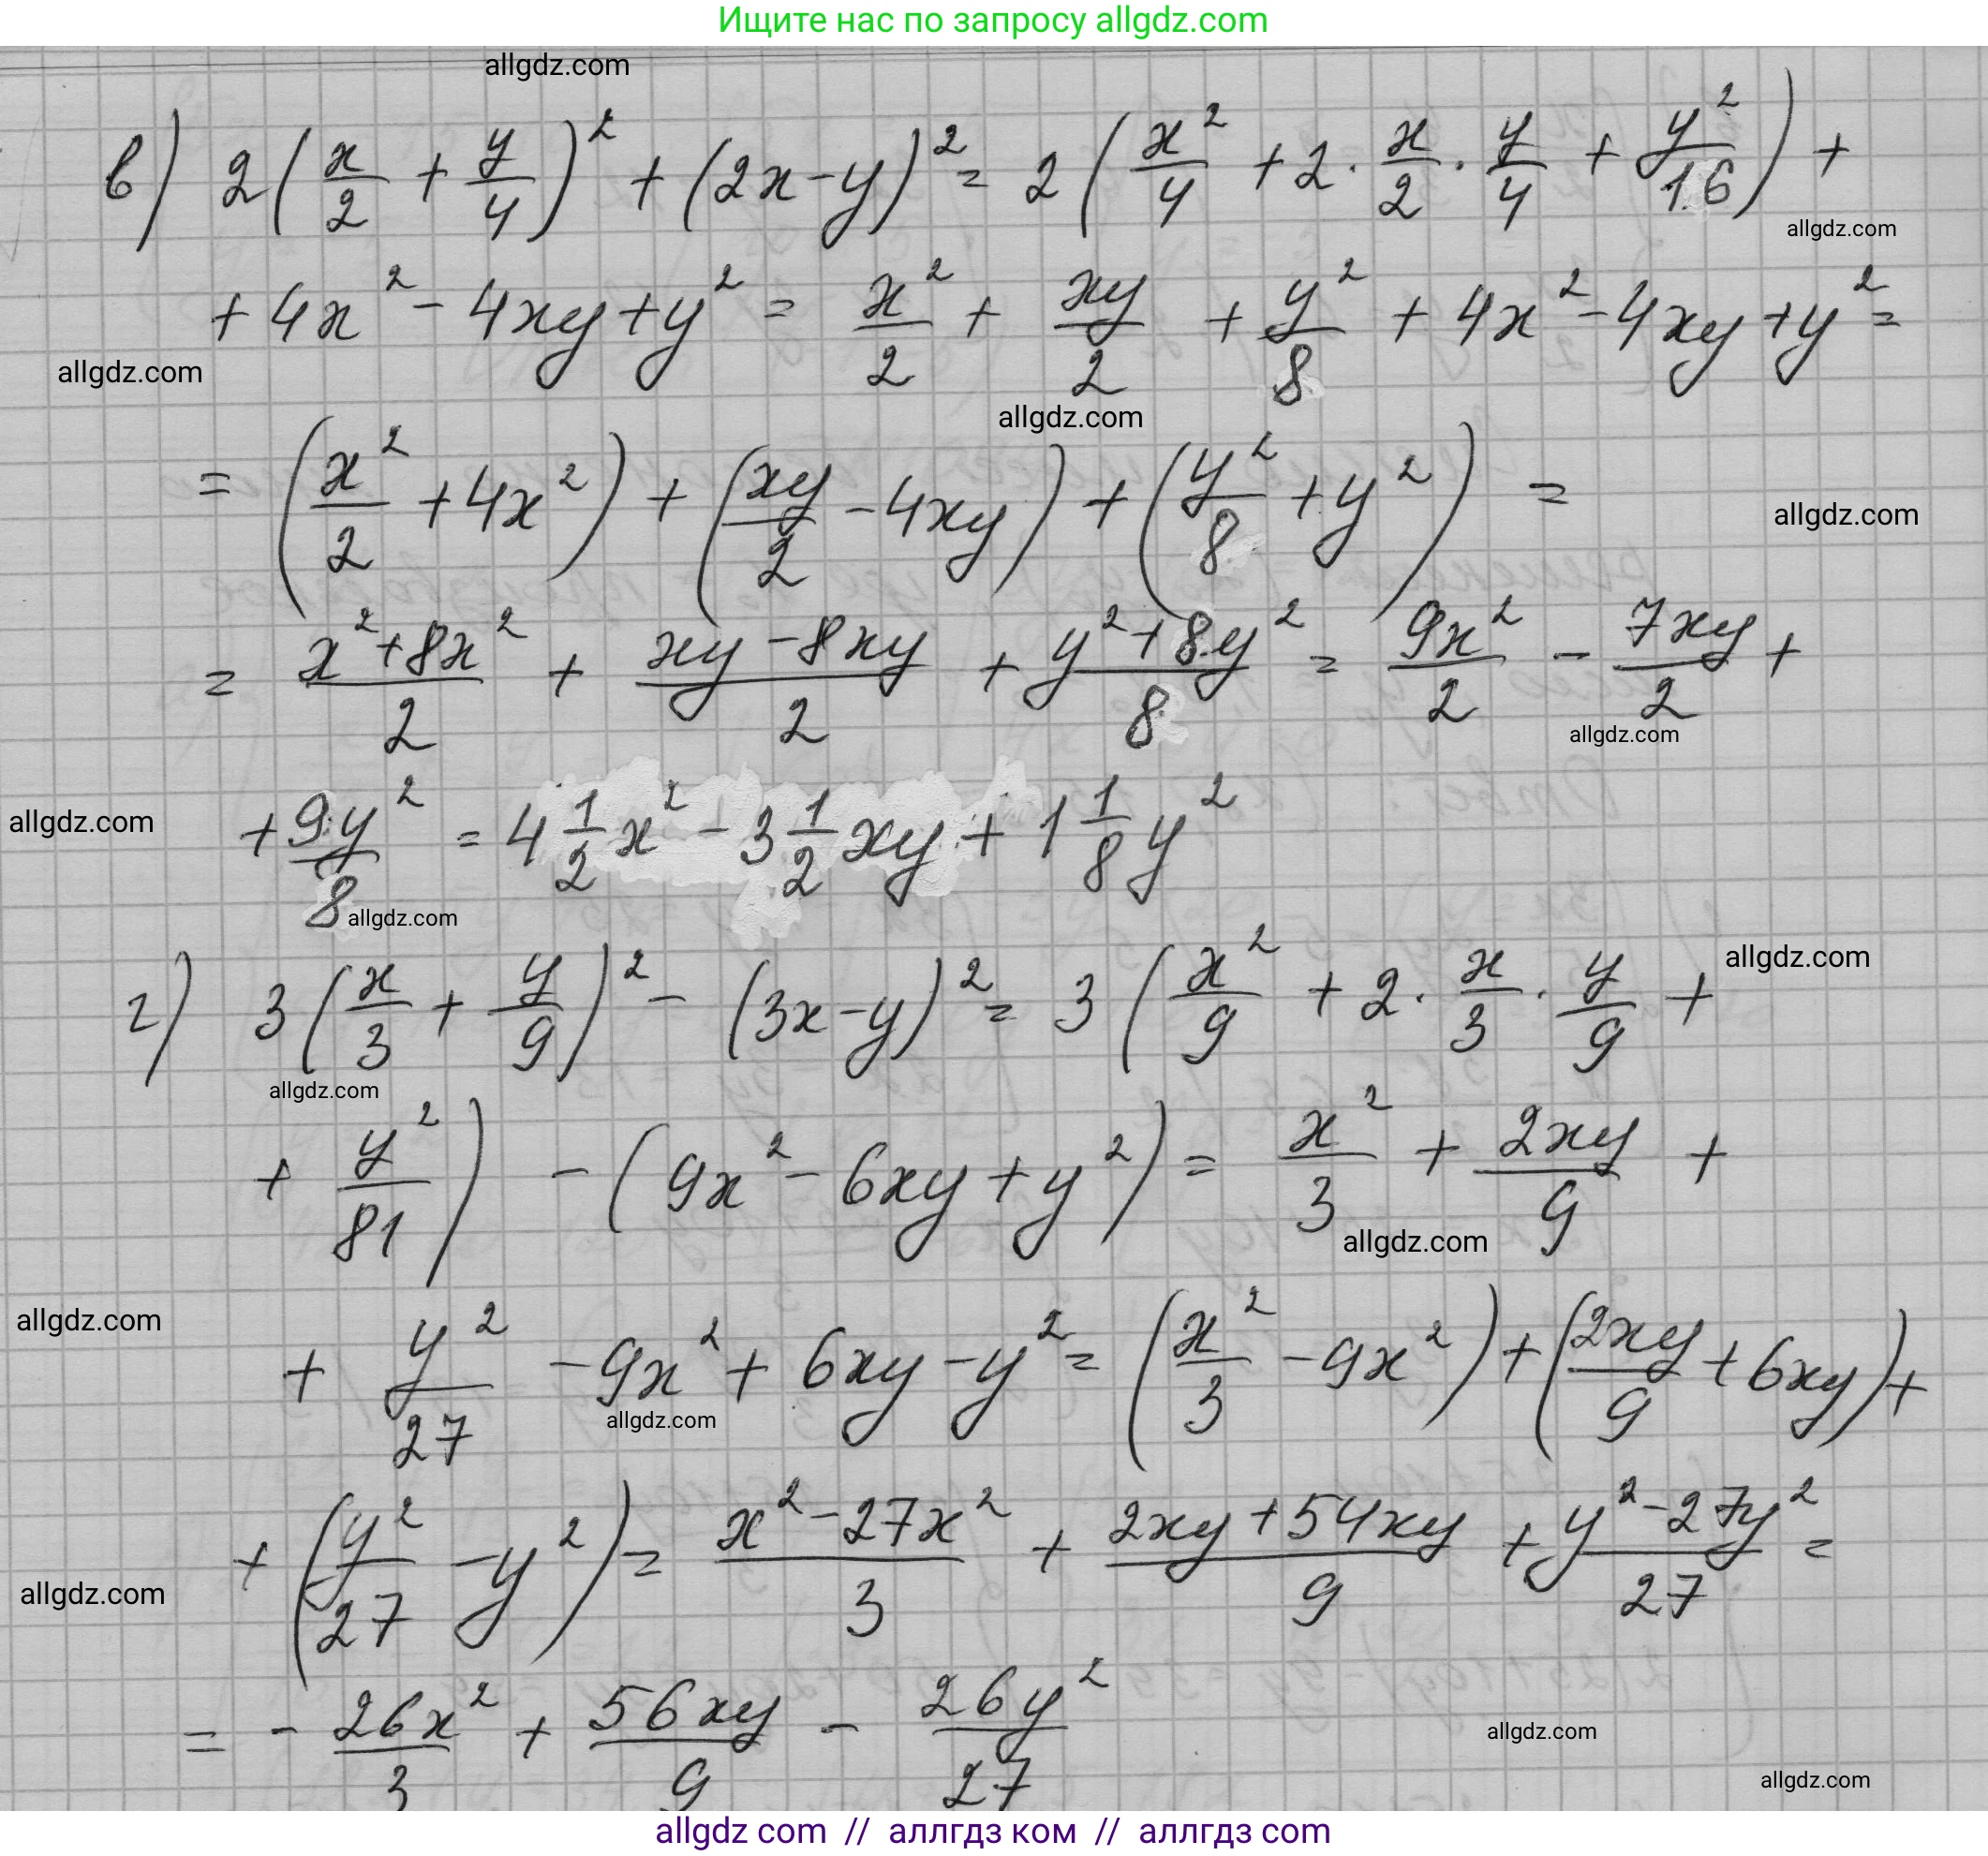 Ищите нас по запросу allgdz.com
allgdz.com
в) 2(x/2 + y/4)² + (2x-y)² = 2(x²/4 + 2·x/2·y/4 + y²/16) +
allgdz.com
+ 4x² - 4xy + y² = x²/2 + xy/2 + y²/8 + 4x² - 4xy + y² =
allgdz.com
allgdz.com
= (x²/2 + 4x²) + (xy/2 - 4xy) + (y²/8 + y²) =
allgdz.com
= (x²+8x²)/2 + (xy-8xy)/2 + (y²+8y²)/8 = 9x²/2 - 7xy/2 +
allgdz.com
allgdz.com
+ 9y²/8 = 4 1/2 x² - 3 1/2 xy + 1 1/8 y²
allgdz.com
allgdz.com
г) 3(x/3 + y/9)² - (3x-y)² = 3(x²/9 + 2·x/3·y/9 +
allgdz.com
+ y²/81) - (9x² - 6xy + y²) = x²/3 + 2xy/9 +
allgdz.com
allgdz.com
+ y²/27 - 9x² + 6xy - y² = (x²/3 - 9x²) + (2xy/9 + 6xy) +
allgdz.com
+ (y²/27 - y²) = (x²-27x²)/3 + (2xy+54xy)/9 + (y²-27y²)/27 =
allgdz.com
= - 26x²/3 + 56xy/9 - 26y²/27
allgdz.com
allgdz.com
allgdz com // аллгдз ком // аллгдз com